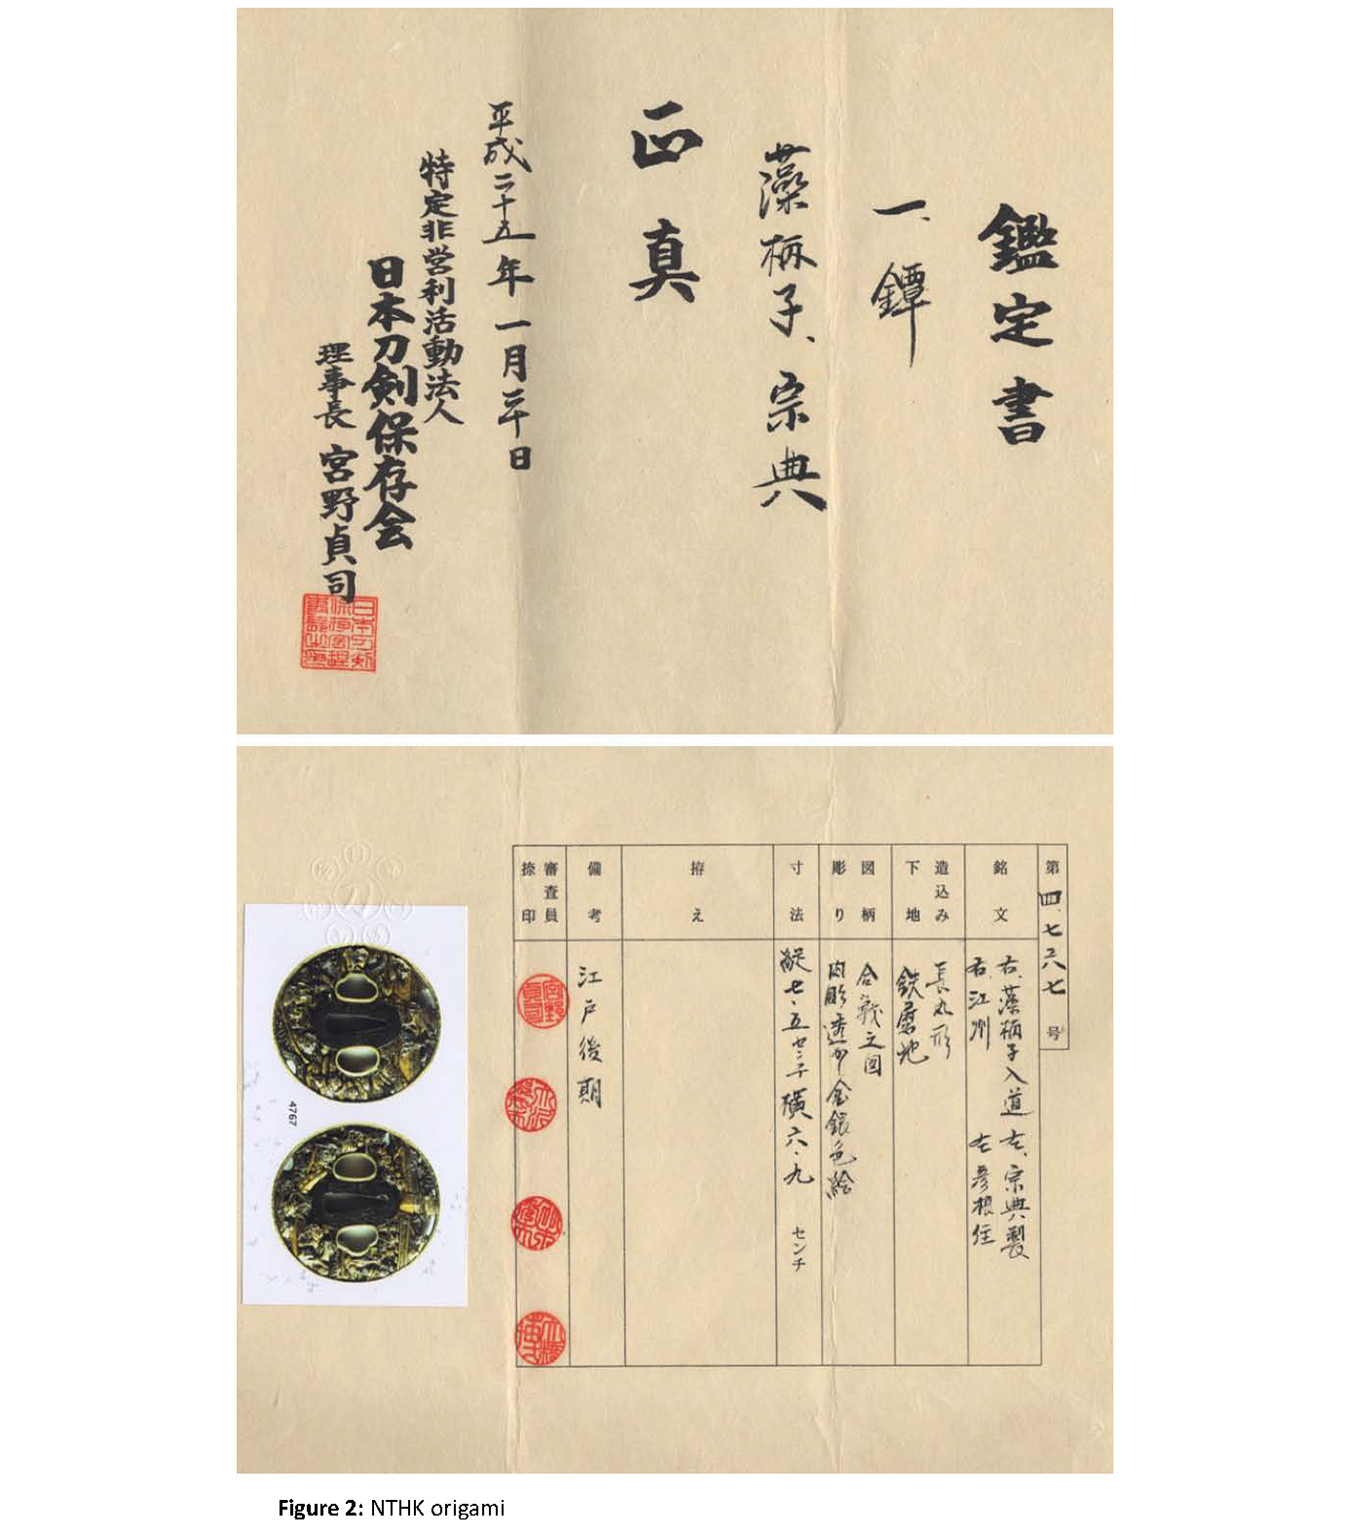 鑑定書
一、鐔
藻柄子、宗典
正真
平成二十五年一月三十日
特定非営利活動法人
日本刀剣保存会
理事長 宮野貞司
第四、七六七号
銘文
右、藻柄子入道 左、宗典製
右、江州 左彦根住
造込み
下地
長丸形
鉄磨地
図柄
彫り
合戦之図
肉彫透か金銀色絵
寸法
縦七・五センチ横六・九 センチ
拵え
備考
江戸後期
審査員
捺印
4767
Figure 2: NTHK origami